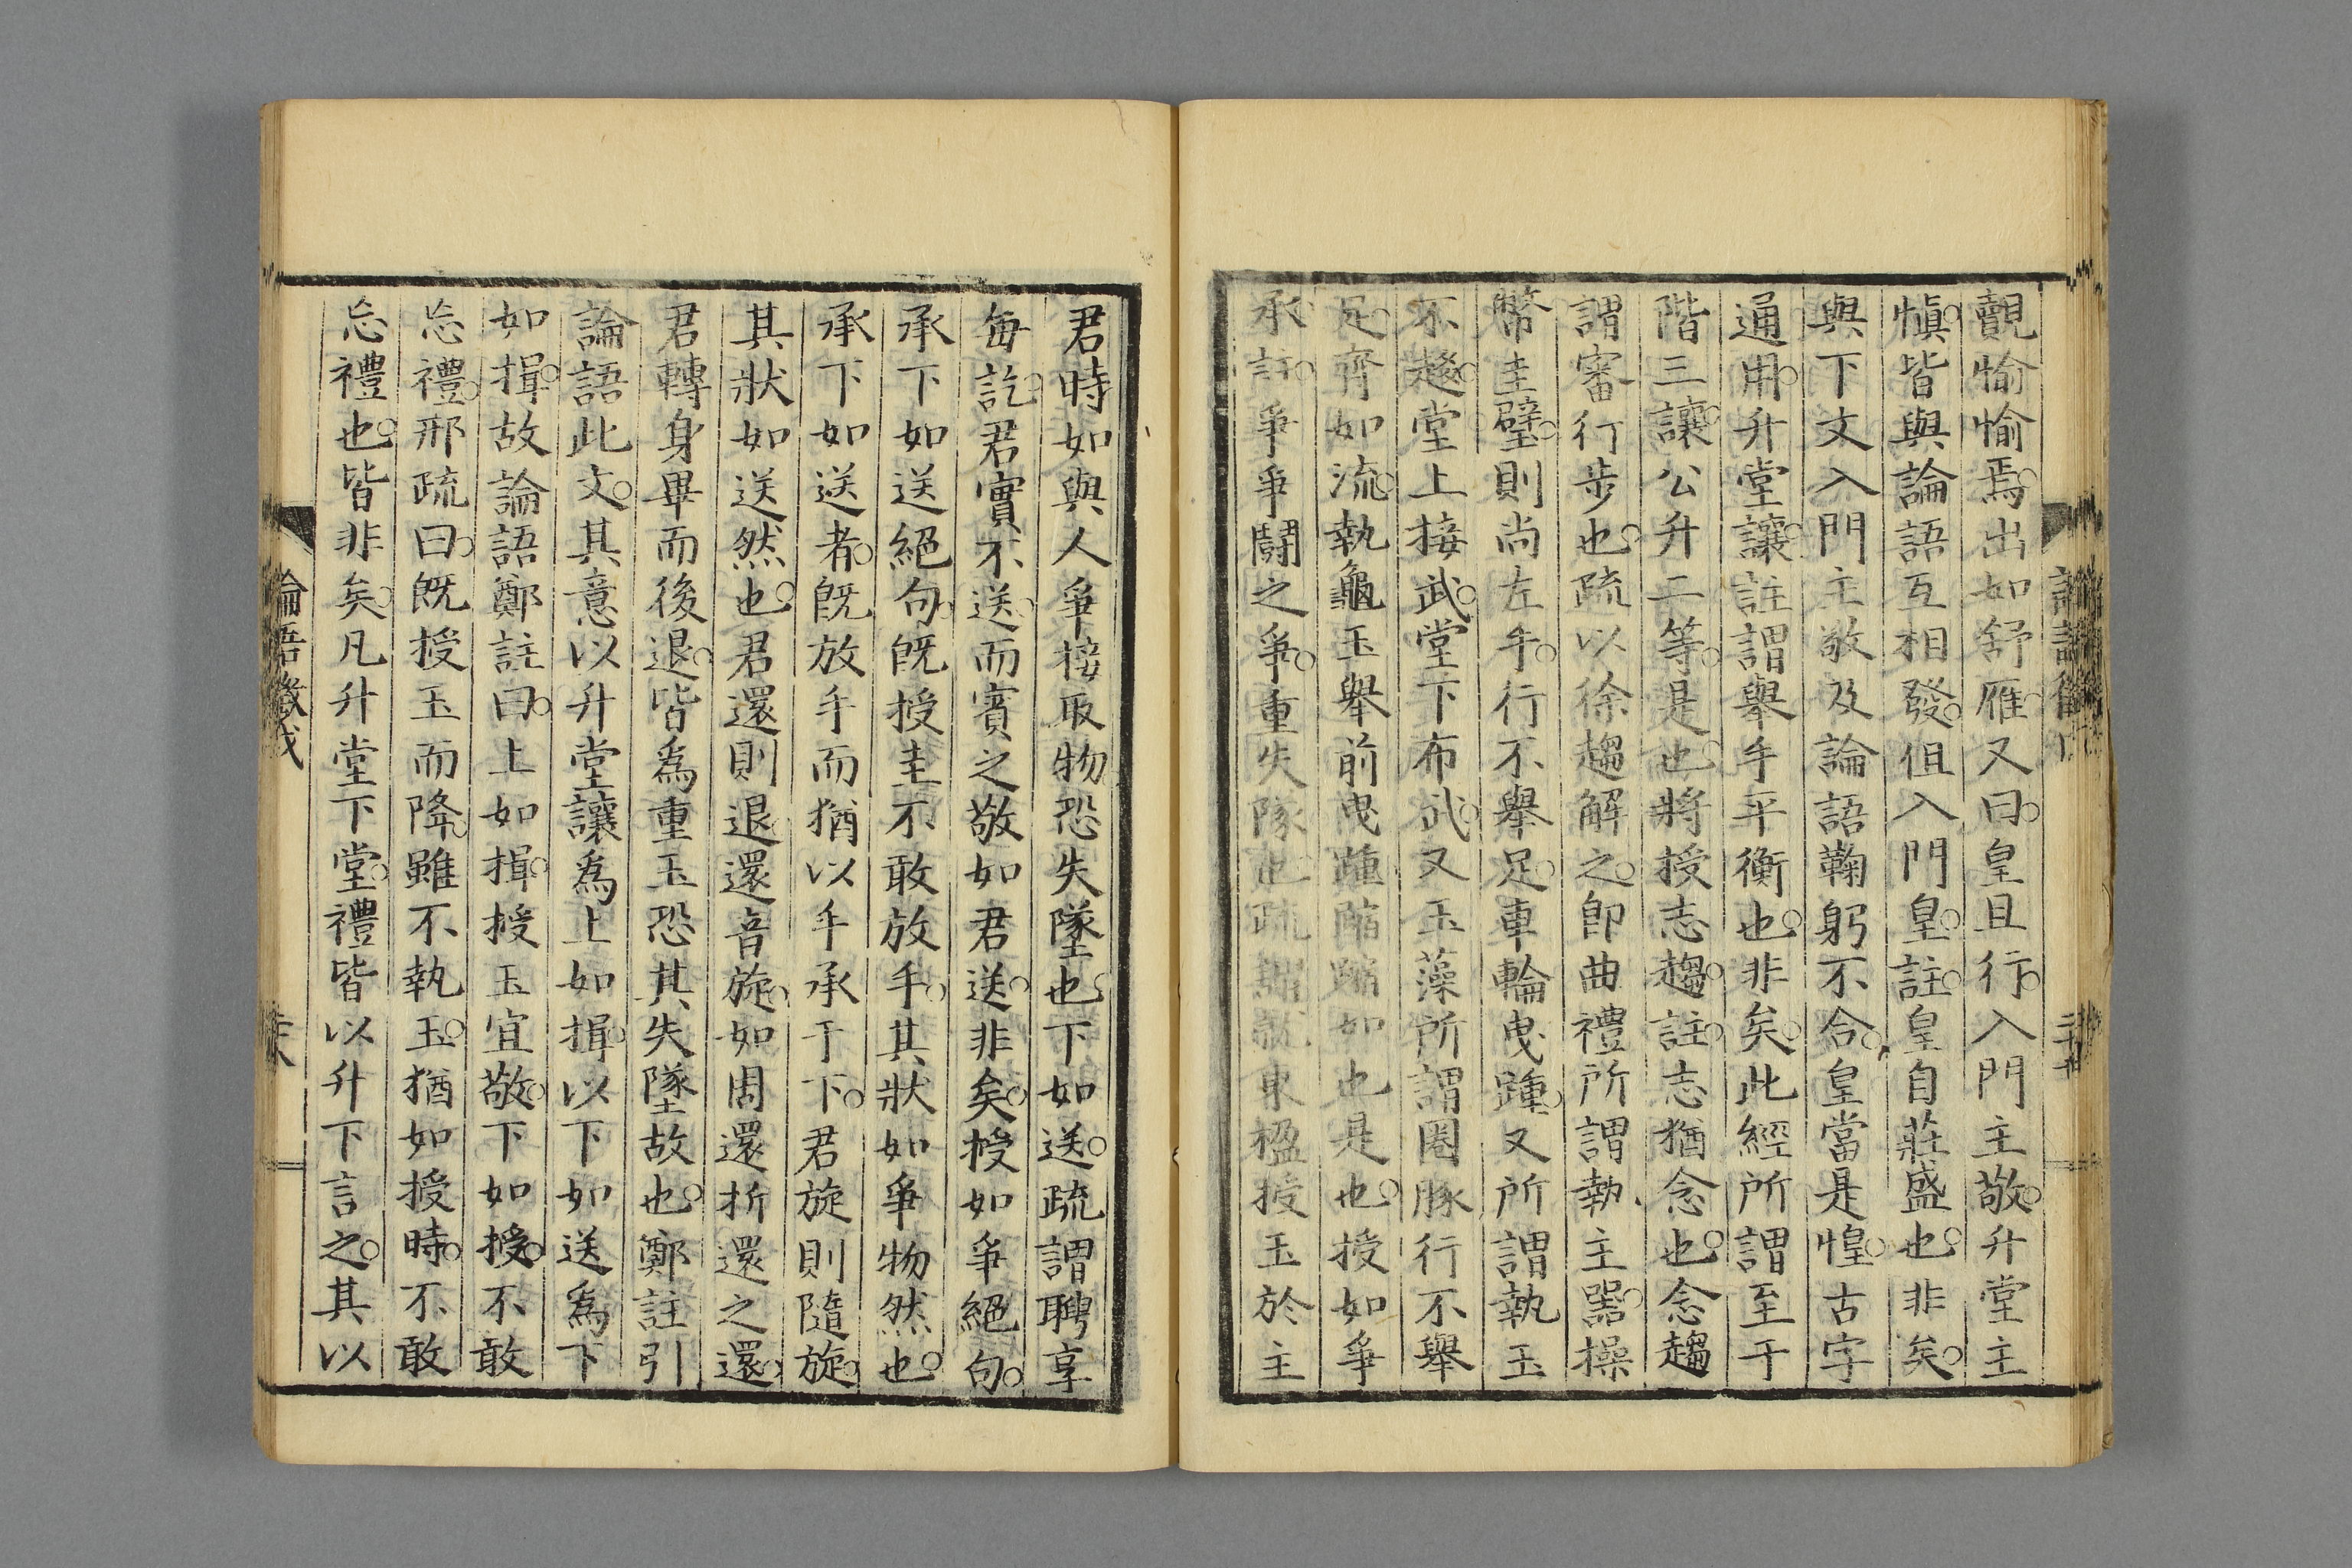 覿愉愉焉。出如舒雁。又曰。皇且行。入門主敬。升堂主
愼。皆與論語互相發。但入門皇。註皇自莊盛也。非矣。
與下文入門主敬及論語鞠躬不合。皇當是惶。古字
通用。升堂讓。註謂舉手平衡也。非矣。此經所謂至于
階三讓。公升二等。是也。將授志趨。註。志猶念也。念趨
謂審行步也。疏以徐趨解之。卽曲禮所謂執主器。操
幣圭璧。則尚左手。行不舉足。車輪曳踵。又所謂執玉
不趨。堂上接武。堂下布武。又玉藻所謂圈豚行不舉
足。齊如流。執龜玉舉前曳踵蹜蹜如也是也。授如爭
承。註。爭爭鬪之爭。重失隊也。疏謂就東楹授玉於主
君時。如與人爭接取物。恐失墜也。下如送。疏謂聘享
每訖。君實不送。而賓之敬如君送。非矣。授如爭絕句。
承下如送絕句。旣授圭不敢放手。其狀如爭物然也。
承下如送者。旣放手而猶以手承于下。君旋則隨旋。
其狀如送然也。君還則退。還音旋。如周還折還之還。
君轉身畢而後退。皆爲重玉恐其失墜故也。鄭註引
論語此文。其意以升堂讓爲上如揖。以下如送爲下
如揖。故論語鄭註曰。上如揖。授玉宜敬。下如授。不敢
忘禮。邢疏曰。旣授玉而降。雖不執玉。猶如授時。不敢
忘禮也。皆非矣。凡升堂下堂。禮皆以升下言之。其以
論語徵戊